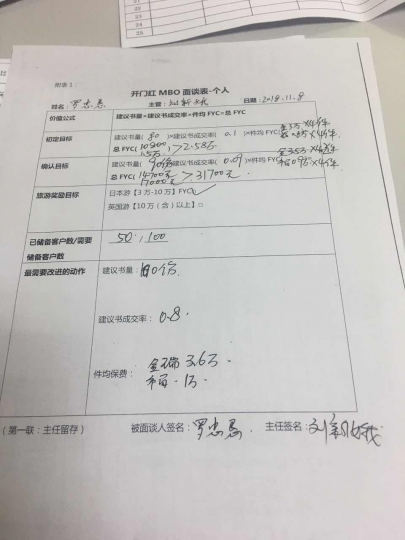 附表1：
开门红 MBO 面谈表-个人
姓名：罗忠 主管：刘 日期：2018.11.8
价值公式 建议书量×建议书成交率×件均 FYC=总 FYC
初定目标 建议书量( 80 )×建议书成交率( 0.1 )×件均FYC(
总 FYC( >2.58万
确认目标 建议书量( 90份 建议书成交率( 0.09 )×件均FYC(
总 FYC( 14700元 17000元 >31700元
旅游奖励目标 日本游【3 万-10 万】FYC
英国游【10 万（含）以上】□
已储备客户数/需要储备客户数 50，100
最需要改进的动作 建议书量：100份
建议书成交率：0.8.
件均保费：金瑞 3.6万.
福 1万.
（第一联：主任留存） 被面谈人签名：罗忠 主任签名：刘